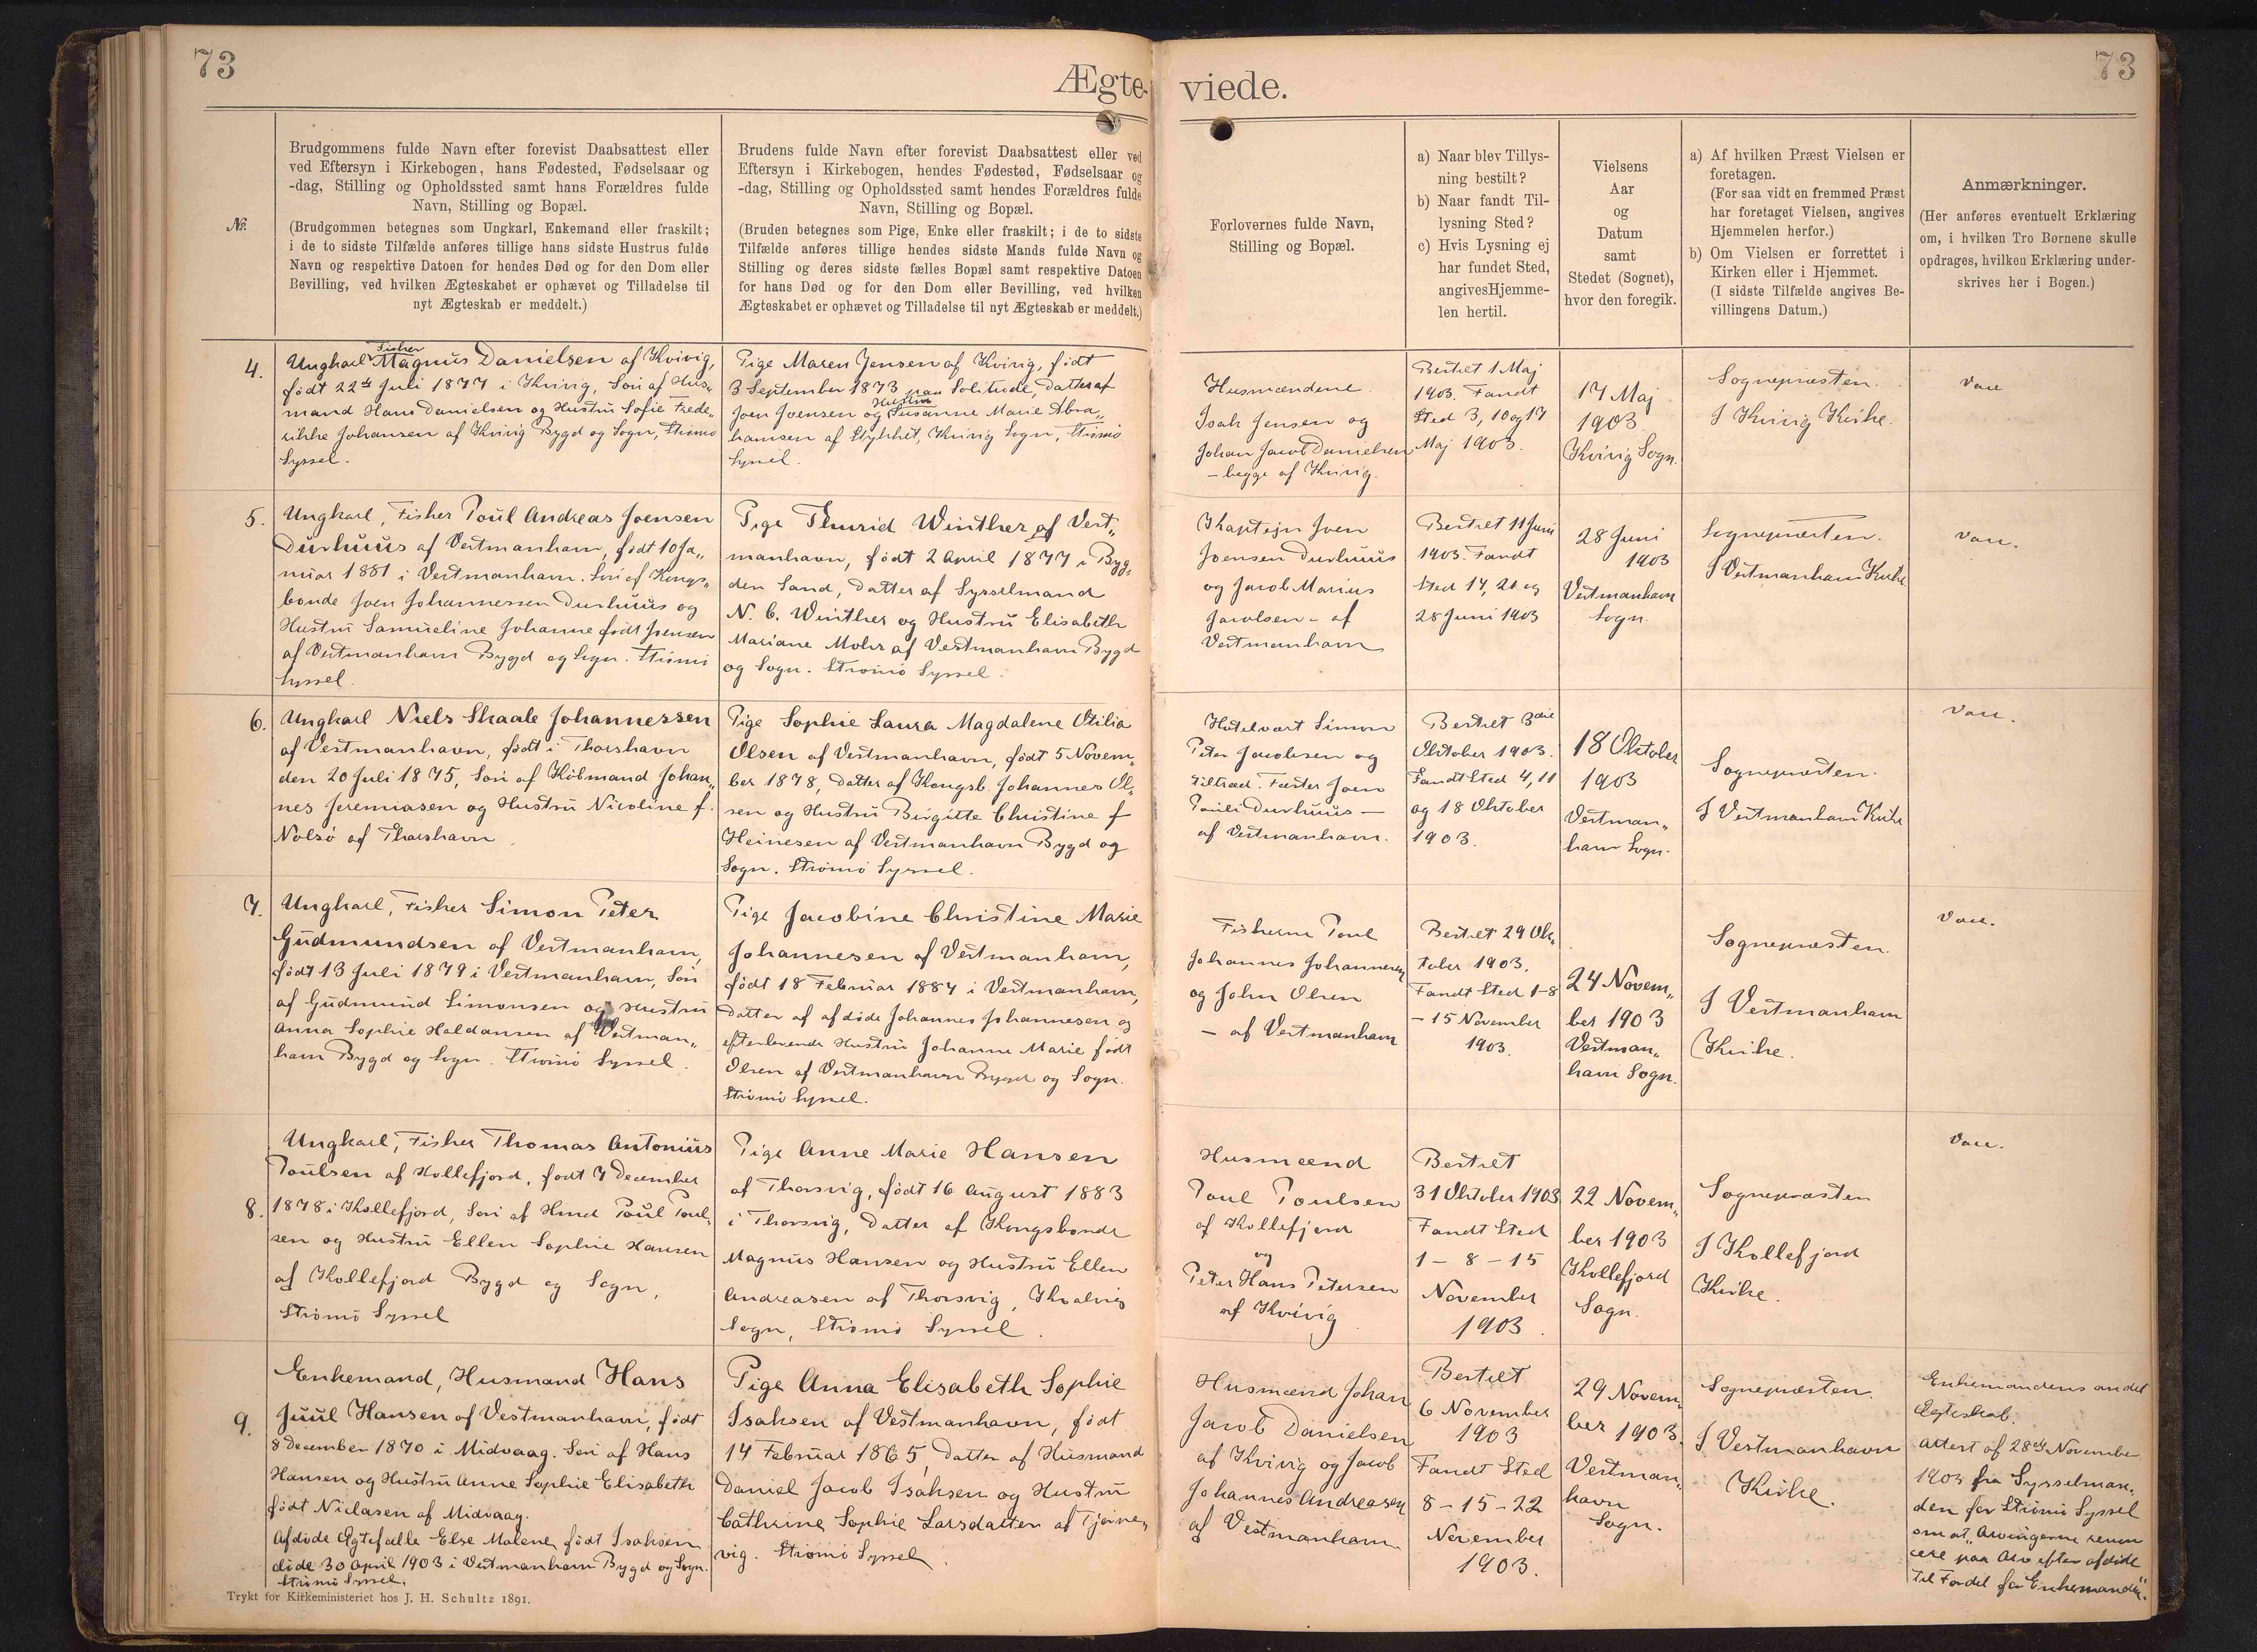 73
73
Ægte-
viede.
№.
Brudgommens fulde Navn efter forevist Daabsattest eller
ved Eftersyn i Kirkebogen, hans Fødested, Fødselsaar og
-dag, Stilling og Opholdssted samt hans Forældres fulde
Navn, Stilling og Bopæl.
(Brudgommen betegnes som Ungkarl, Enkemand eller fraskilt;
i de to sidste Tilfælde anføres tillige hans sidste Hustrus fulde
Navn og respektive Datoen for hendes Død og for den Dom eller
Bevilling, ved hvilken Ægteskabet er ophævet og Tilladelse til
nyt Ægteskab er meddelt.)
Brudens fulde Navn efter forevist Daabsattest eller ved
Eftersyn i Kirkebogen, hendes Fødested, Fødselsaar og
-dag, Stilling og Opholdssted samt hendes Forældres fulde
Navn, Stilling og Bopæl.
(Bruden betegnes som Pige, Enke eller fraskilt; i de to sidste
Tilfælde anføres tillige hendes sidste Mands fulde Navn og
Stilling og deres sidste fælles Bopæl samt respektive Datoen
for hans Død og for den Dom eller Bevilling, ved hvilken
Ægteskabet er ophævet og Tilladelse til nyt Ægteskab er meddelt.)
Forlovernes fulde Navn,
Stilling og Bopæl.
a) Naar blev Tillys-
ning bestilt?
b) Naar fandt Til-
lysning Sted?
c) Hvis Lysning ej
har fundet Sted,
angivesHjemme-
len hertil.
Vielsens
Aar
og
Datum
samt
Stedet (Sognet),
hvor den foregik.
a) Af hvilken Præst Vielsen er
foretagen.
(For saa vidt en fremmed Præst
har foretaget Vielsen, angives
Hjemmelen herfor.)
b) Om Vielsen er forrettet i
Kirken eller i Hjemmet.
(I sidste Tilfælde angives Be-
villingens Datum.)
Anmærkninger.
(Her anføres eventuelt Erklæring
om, i hvilken Tro Børnene skulle
opdrages, hvilken Erklæring under-
skrives her i Bogen.)
4.
Fisher
Ungkarl Magnus Danielsen af Kvivig,
født 22de Juli 1877 i Kvivig, Søn af Hus„
mand Hans Danielsen og Hustru Sofie Frede„
rikke Johansen af Kvivig Bygd og Sogn, Strömö
Syssel.
Pige Maren Jensen af Kvivig, født
3 September 1873 paa Solitude, Datter af
Hustru
Joen Joensen og Susanne Marie Abra„
hamsen af Stykket, Kvivig Sogn, Strömö
Syssel.
Husmændene
Isak Jensen og
Johan Jacob Danielsen
– begge af Kvivig.
Bestilt 1 Maj
1903. Fandt
Sted 3, 10 og 17
Maj 1903.
17 Maj
1903
Kvivig Sogn.
Sognepræsten.
I Kvivig Kirke.
Vacc
5.
Ungkarl, Fisher Poul Andreas Joensen
Durhuus af Vestmanhavn, født 10 Ja„
nuar 1881 i Vestmanhavn. Søn af Kongs„
bonde Joen Johannessen Durhuus og
Hustru Samueline Johanne født Joensen
af Vestmanhavn Bygd og Sogn. Strömö
Syssel.
Pige Thurid Winther af Vest„
manhavn, født 2 April 1877 i Byg„
den Sand, Datter af Sysselmand
N. C. Winther og Hustru Elisabeth
Mariane Mohr af Vestmanhavn Bygd
og Sogn. Strömö Syssel.
Kaptejn Joen
Joensen Durhuus
og Jacob Marius
Jacobsen – af
Vestmanhavn
Bestilt 11 Juni
1903. Fandt
Sted 14, 21 og
28 Juni 1903
28 Juni
1903
Vestmanhavn
Sogn.
Sognepræsten.
I Vestmanhavn Kirke
Vacc.
6.
Ungkarl Niels Skaale Johannessen
af Vestmanhavn, født i Thorshavn
den 20 Juli 1875, Søn af Köbmand Johan„
nes Jeremiasen og Hustru Nicoline f.
Nolsö af Thorshavn.
Pige Sophie Laura Magdalene Otilia
Olsen af Vestmanhavn, født 5 Novem„
ber 1878, Datter af Kongsb. Johannes Ol„
sen og Hustru Birgitte Christine f
Heinesen af Vestmanhavn Bygd og
Sogn. Strömö Syssel.
Hotelvært Simon
Peter Jacobsen og
tiltræd. Fæster Joen
Durhuus –
af Vestmanhavn.
Bestilt 3die
Oktober 1903.
Fandt Sted 4, 11
og 18 Oktober
1903.
18 Oktober
1903
Vestman„
havn Sogn.
Sognepræsten.
I Vestmanhavn Kirke
Vacc.
7.
Ungkarl, Fisher Simon Peter
Gudmundsen af Vestmanhavn,
født 13 Juli 1879 i Vestmanhavn, Søn
af Gudmund Simonsen og Hustru
Anna Sophie Haldansen af Vestman„
havn Bygd og Sogn. Strömö Syssel.
Pige Jacobine Christine Marie
Johannesen af Vestmanhavn,
født 18 Februar 1884 i Vestmanhavn,
Datter af afdøde Johannes Johannesen og
efterlevende Hustru Johanne Marie født
Olsen af Vestmanhavn Bygd og Sogn.
Strömö Syssel.
Fisherne Poul
Johannes Johannesen
og John Olsen
– af Vestmanhavn
Bestilt 29 Ok„
tober 1903.
Fandt Sted 1–8
– 15 November
1903.
24 Novem„
ber 1903
Vestman„
havn Sogn.
Sognepræsten.
I Vestmanhavn
Kirke.
Vacc.
8.
Ungkarl, Fisher Thomas Antonius
Poulsen af Kollefjord, født 7 December
1878 i Kollefjord, Søn af Hmd Poul Poul„
sen og Hustru Ellen Sophie Hansen
af Kollefjord Bygd og Sogn,
Strömö Syssel
Pige Anne Marie Hansen
af Thorsvig, født 16 August 1883
i Thorsvig, Datter af Kongsbonde
Magnus Hansen og Hustru Ellen
Andreasen af Thorsvig, Kvalvig
Sogn, Strömö Syssel.
Husmænd
Poul Poulsen
af Kollefjord
og
Peter Hans Petersen
af Kvivig
Bestilt
31 Oktober 1903
Fandt Sted
1 – 8 – 15
November
1903.
22 Novem„
ber 1903
Kollefjord
Sogn.
Sognepræsten
I Kollefjord
Kirke.
Vacc.
9.
Enkemand, Husmand Hans
Juul Hansen af Vestmanhavn, født
8 December 1870 i Midvaag. Søn af Hans
Hansen og Hustru Anne Sophie Elisabeth
født Niclasen af Midvaag.
Afdøde Ægtefælle Else Malene født Isaksen
döde 30 April 1903 i Vestmanhavn Bygd og Sogn.
Strömö Syssel.
Pige Anna Elisabeth Sophie
Isaksen af Vestmanhavn, født
14 Februar 1865, Datter af Husmand
Daniel Jacob Isaksen og Hustru
Cathrine Sophie Larsdatter af Tjörne„
vig. Strömö Syssel.
Husmænd Johan
Jacob Danielsen
af Kvivig og Jacob
Johannes Andreasen
af Vestmanhavn.
Bestilt
6 November
1903
Fandt Sted
8 – 15 – 22
November
1903.
29 Novem„
ber 1903.
Vestman„
havn
Sogn.
Sognepræsten.
I Vestmanhavn
Kirke.
Enkemandens andet
Ægteskab.
Attest af 28de November
1903 fra Sysselman„
den for Strömö Syssel
om at „Arvingerne renun
cere paa Arv efter afdöde
til Fordel for Enkemanden“.
Trykt for Kirkeministeriet hos J. H. Schultz 1891.